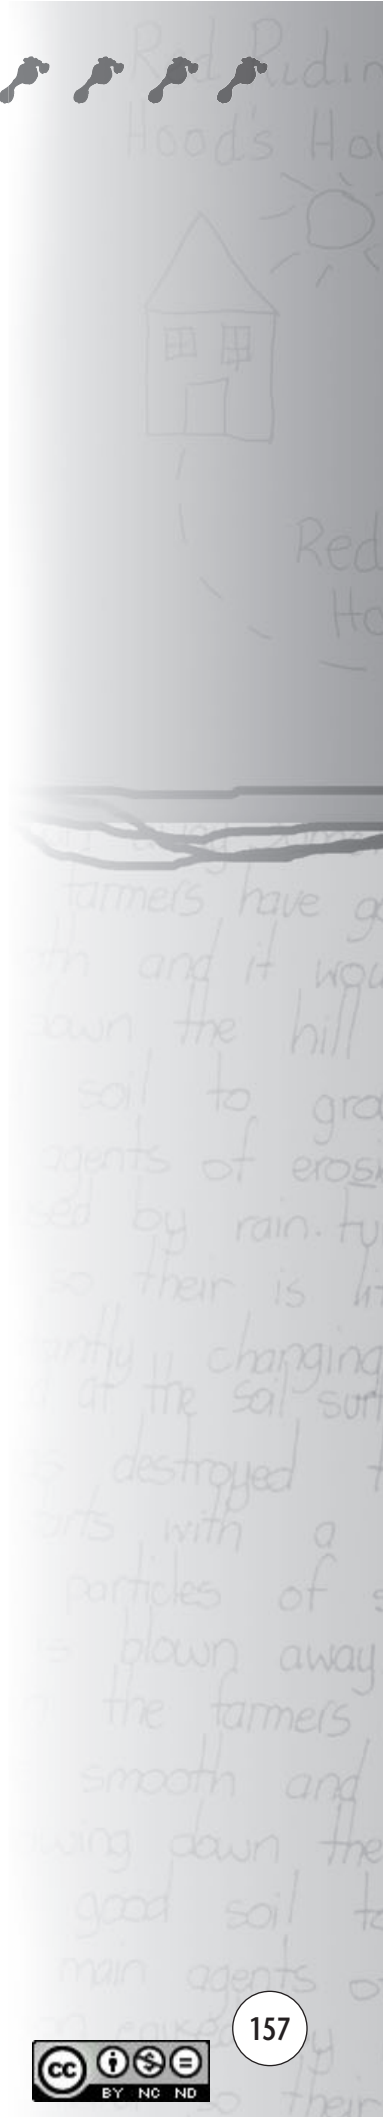 Red Ridin
Hood's Ho
Red
Ho
away some
farmers have go
and it wou
down the hill
soil to gro
agents of erosi
by rain.
so their is lit
changing
at the soil surf
destroyed
with a
particles of s
blown away
the farmers
smooth and
down the
good soil to
main agents o
157
caused by
cc BY NC ND
so their